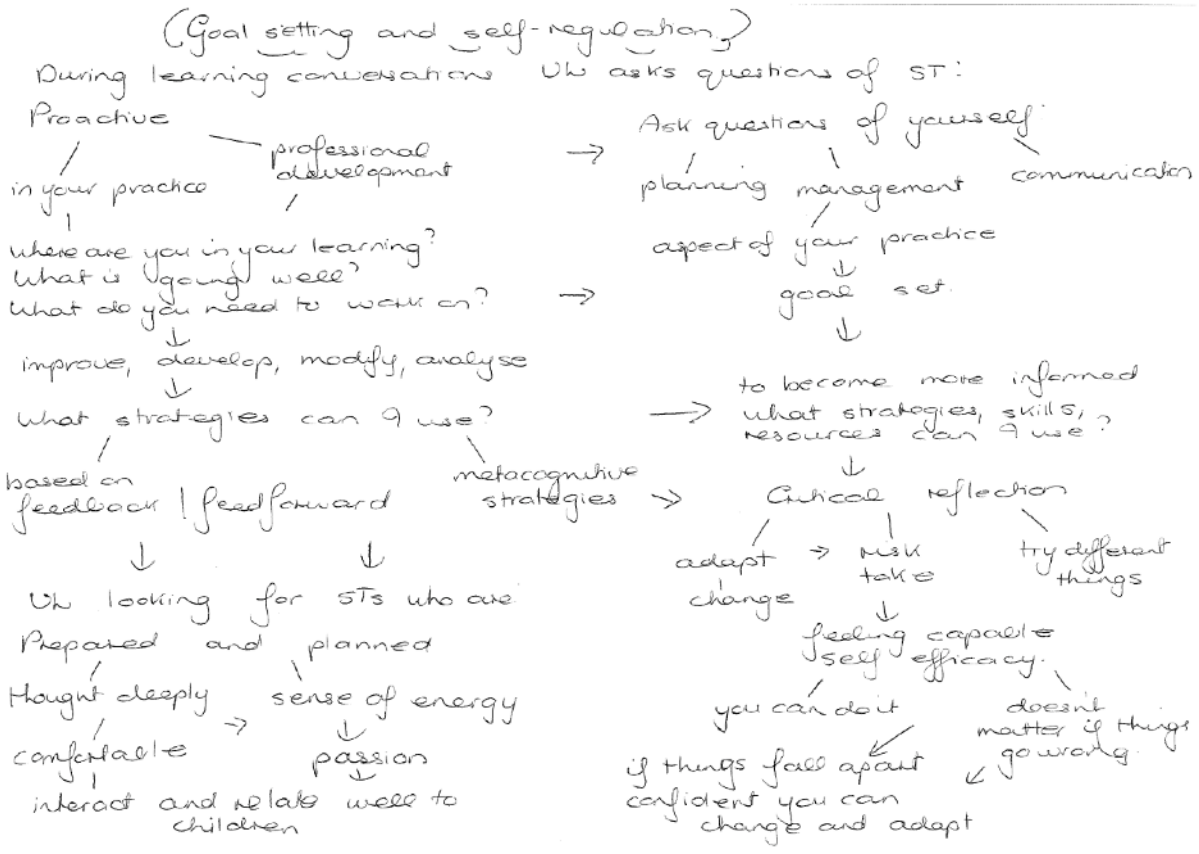 (Goal setting and self-regulation)
During learning conversations UL asks questions of ST:
Proactive
professional
development
in your practice
where are you in your learning?
What is going well?
What do you need to work on?
improve, develop, modify, analyse
What strategies can I use?
based on
feedback / feedforward
metacognitive
strategies
UL looking for STs who are
Prepared and planned
thought deeply
sense of energy
comfortable
passion
interact and relate well to
children
Ask questions of yourself:
planning management communication
aspect of your practice
goal set.
to become more informed
what strategies, skills,
resources can I use?
Critical reflection
adapt
change
risk
take
try different
things
feeling capable
self efficacy.
you can do it
doesn't
matter if things
go wrong.
if things fall apart
confident you can
change and adapt